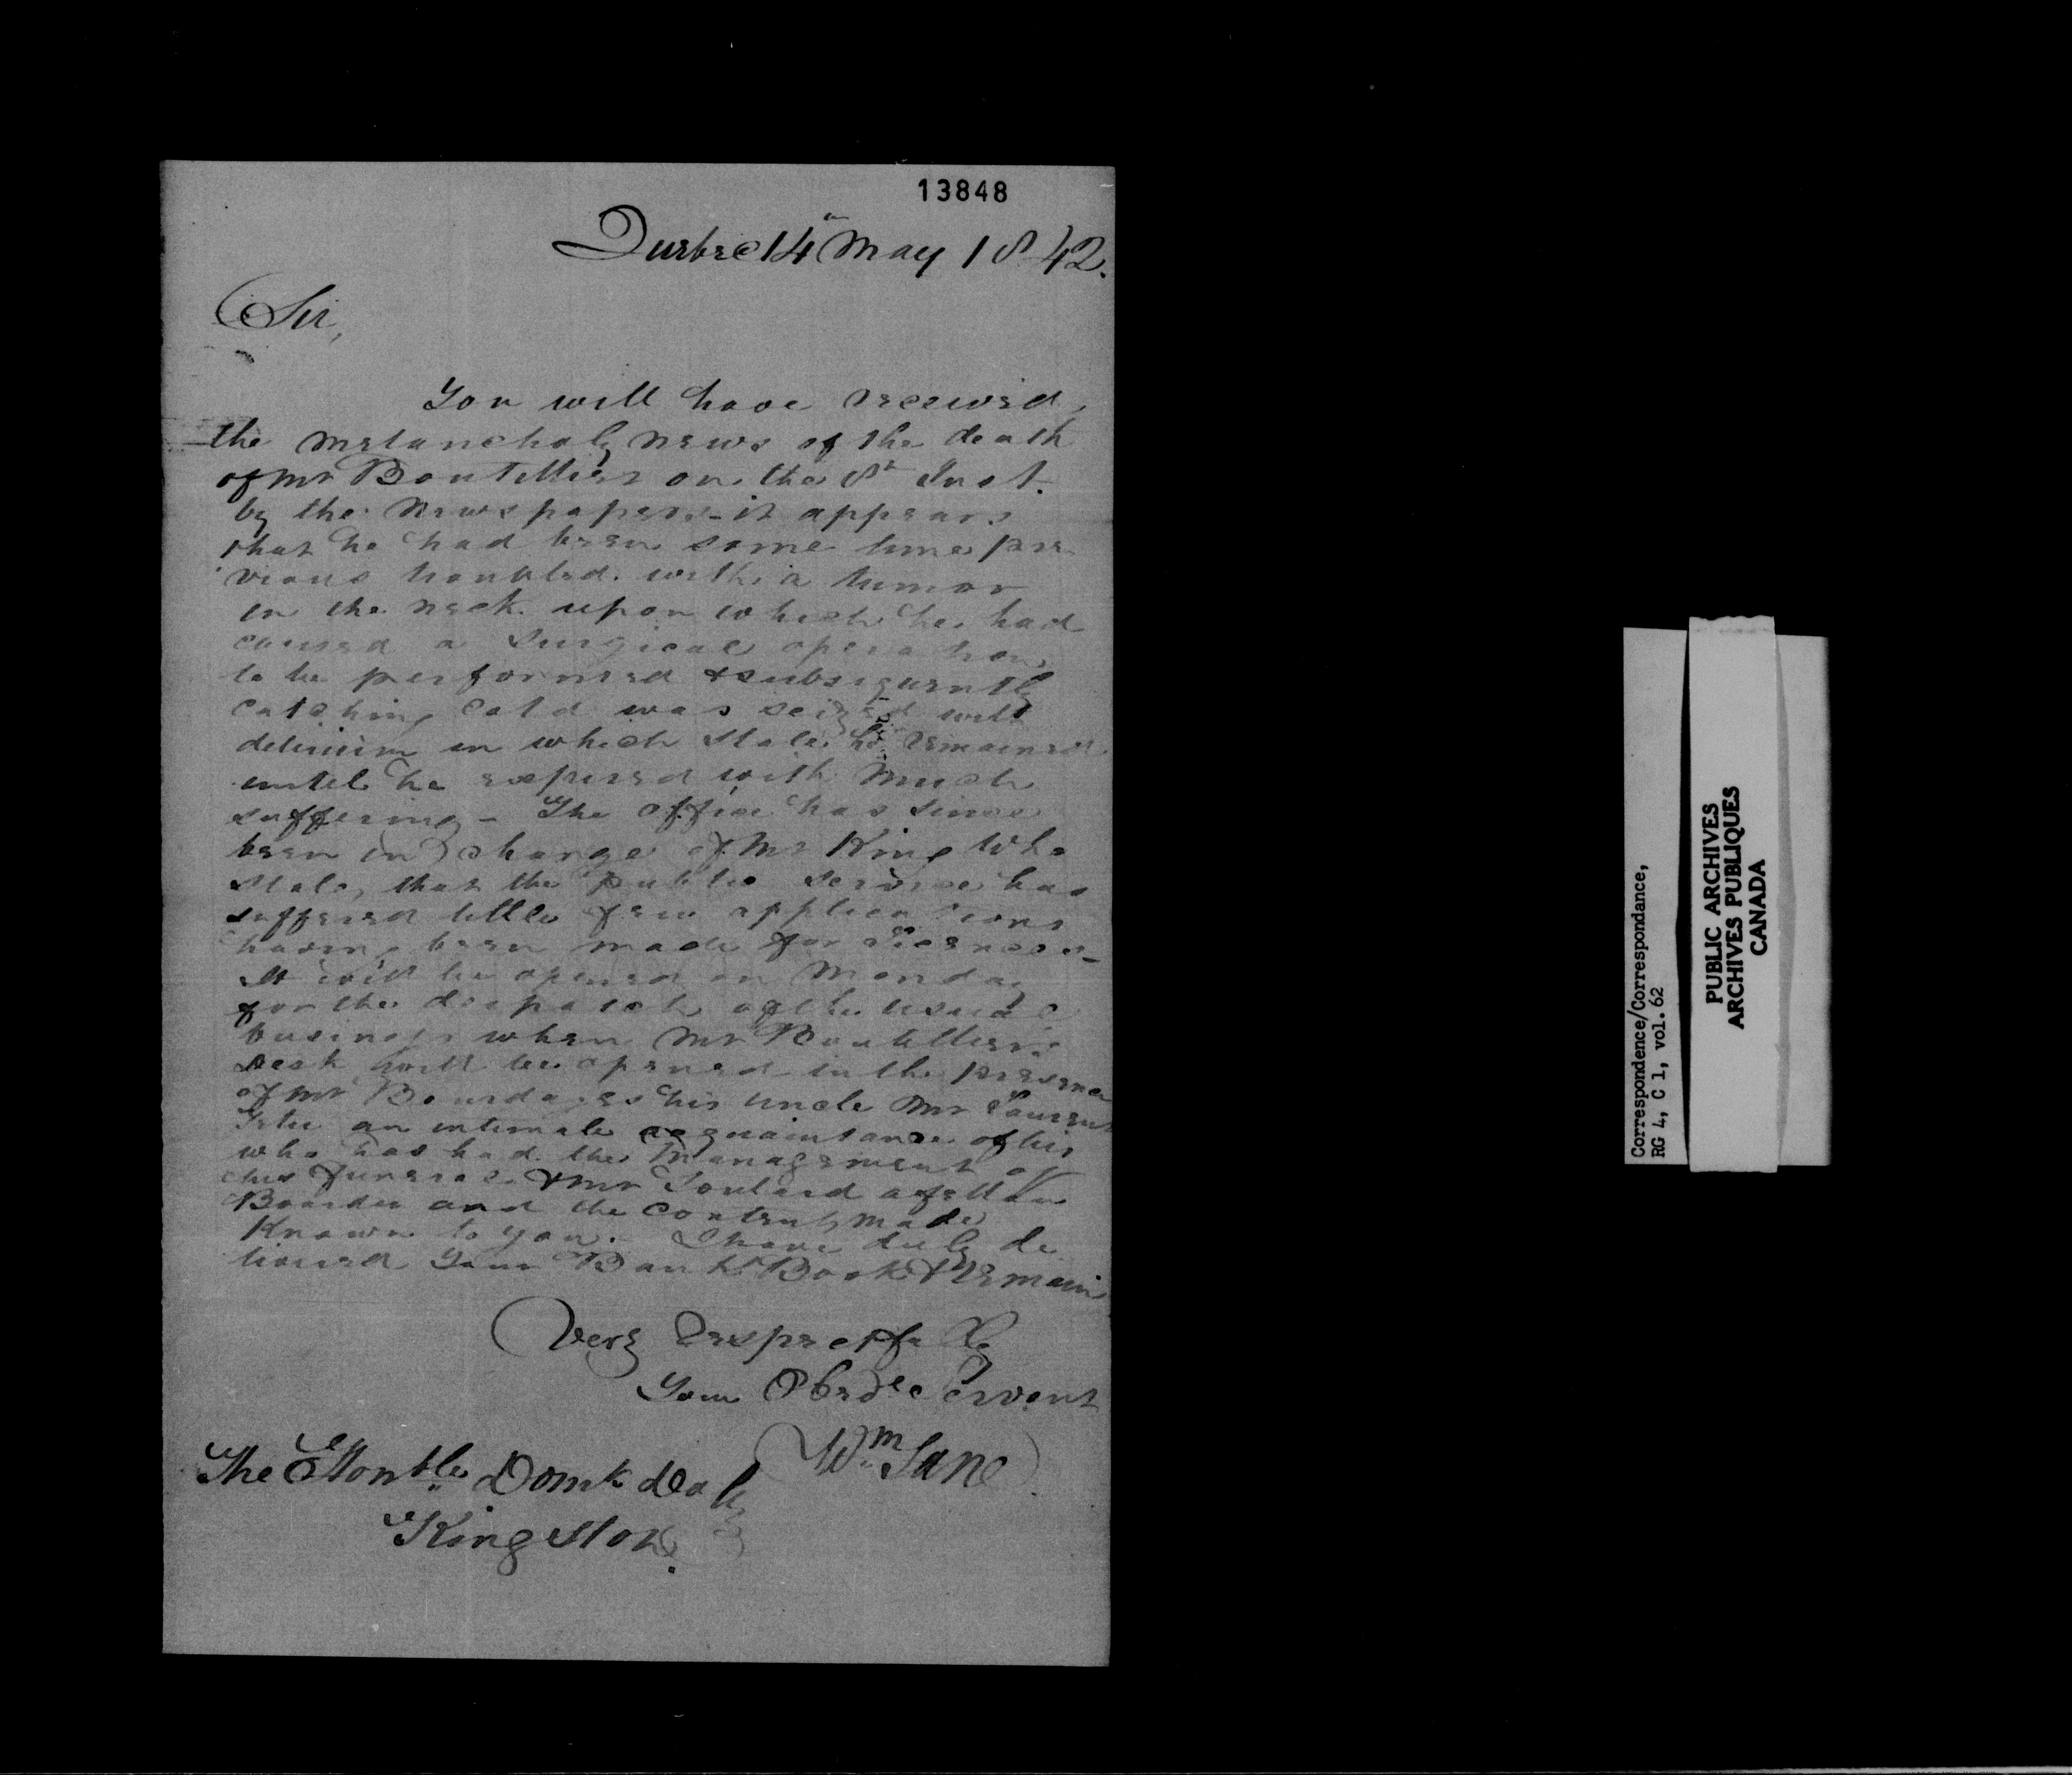 13848
Quebec 14th May 1842.
Sir,
You will have received
the melancholy news of the death
of Mr Boutillier on the 8th Inst.
by the Newspapers - it appears
that he had been some time pre
vious troubled with a tumor
in the neck upon which he had
caused a Surgical operation
to be performed & subsequently
catching cold was seized with
delirium in which state he remained
until he expired with much
suffering - The office has since
been in charge of Mr King who
states that the public service has
suffered little few applications
having been made for Licences -
It will be opened on Monday
for the dispatch of the usual
business when Mr Boutilliers
desk will be opened in the presence
of Mr Bourdages his uncle Mr Laurent
an intimate acquaintance of his
who has had the management of
his funeral & Mr Soulard a fellow
Boarder and the contents made
Known to you. I have duly de
livered your Bank Book & remain
Very Respectfully
Your Obedt Servant
Wm Lane
The Honble Domk Daly
Kingston.
Correspondence/Correspondance,
RG 4, C 1, vol. 62
PUBLIC ARCHIVES
ARCHIVES PUBLIQUES
CANADA